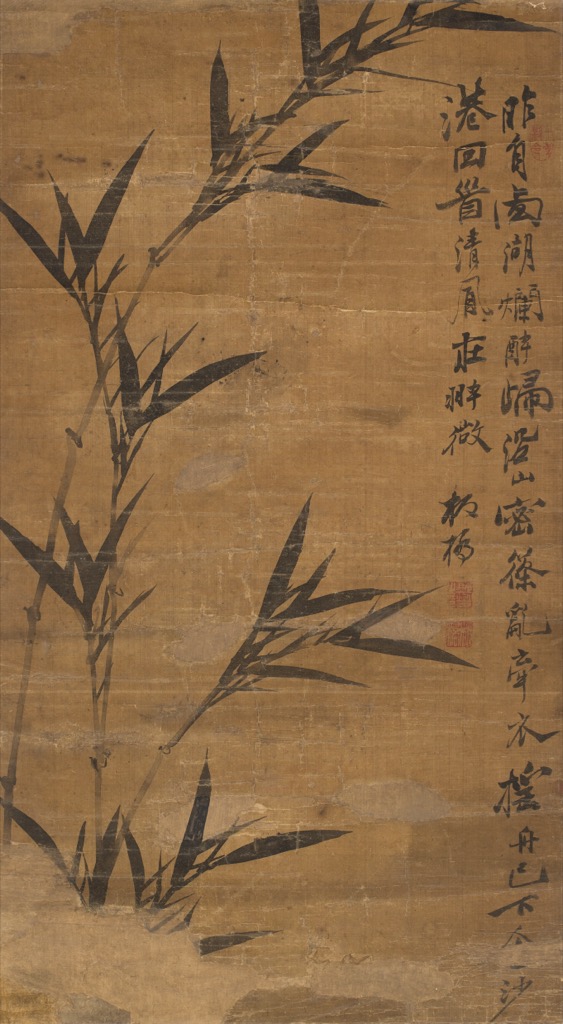 昨自西湖爛醉歸沿山密篠亂牽衣搖舟已下金沙
港回首清風在翠微 板橋